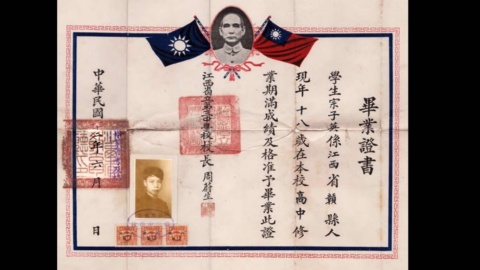 畢業證書
學生宗子英係江西省贛縣人
現年十八歲在本校高中修
業期滿成績及格准予畢業此證
江西省立 校長 周蔚生
中華民國 年六月 日